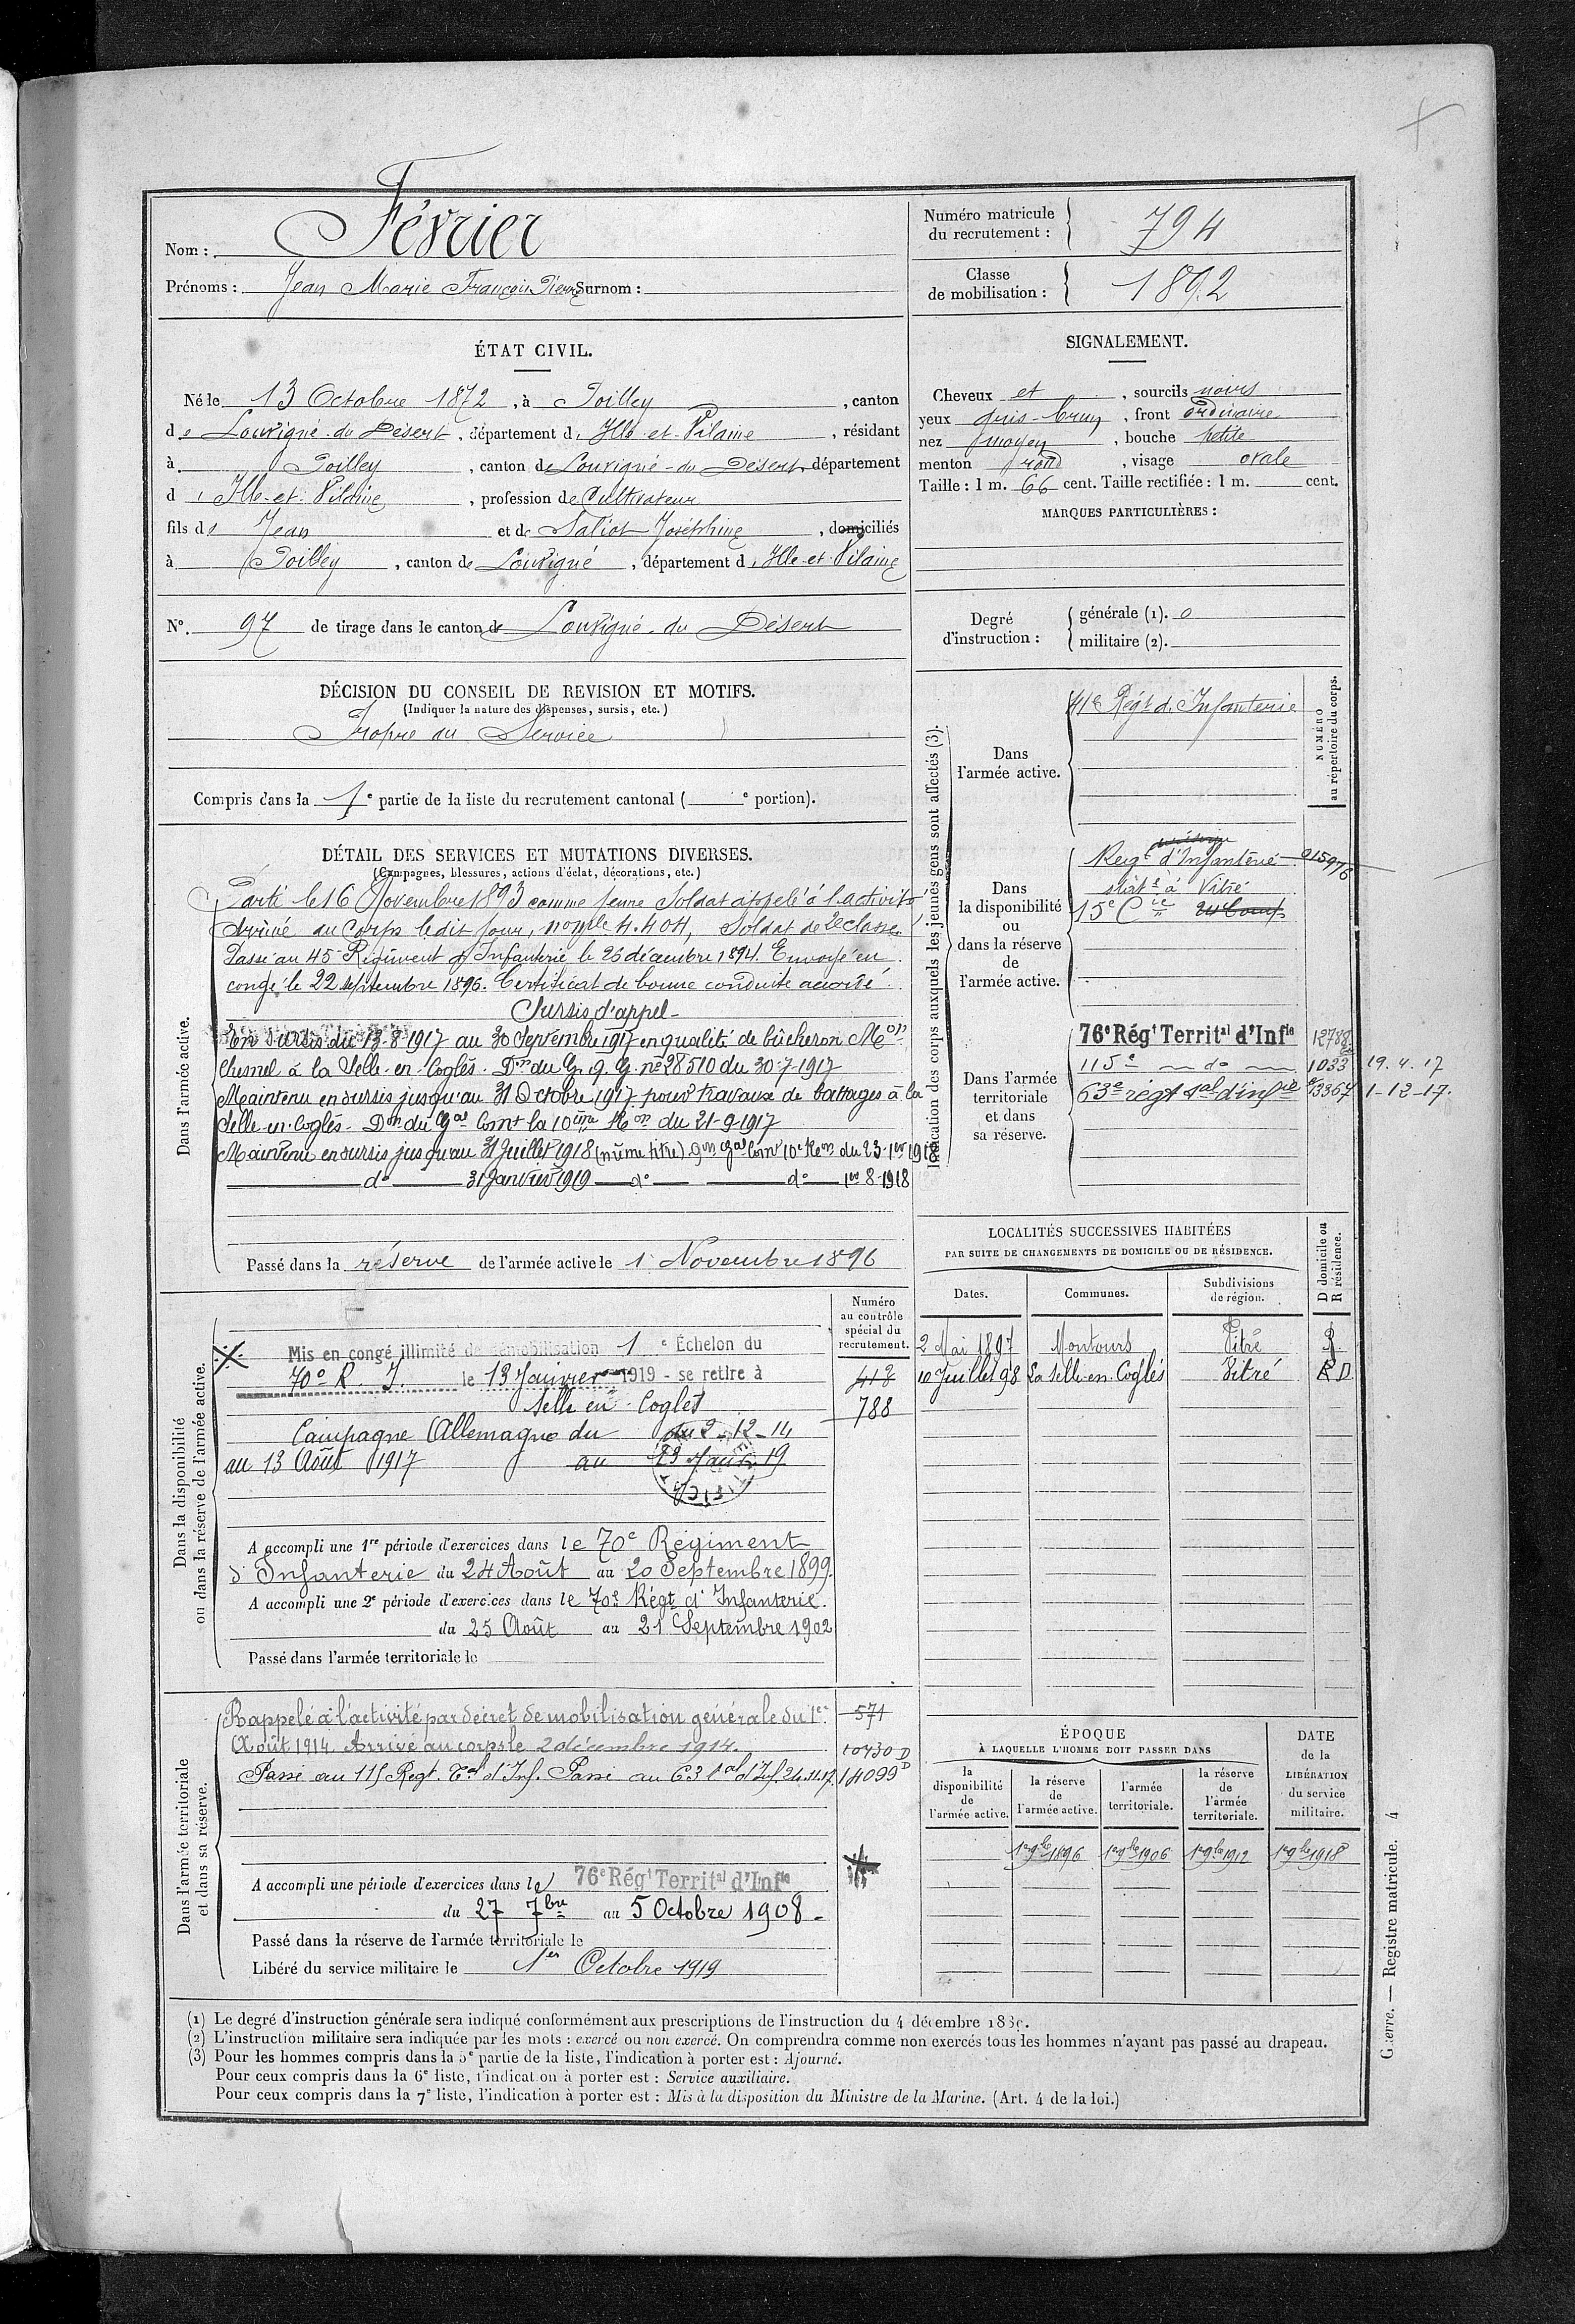 Nom : Février
Prénoms : Jean Marie François Pierre Surnom :
Numéro matricule du recrutement : 794
Classe de mobilisation : 1892
ÉTAT CIVIL.
Né le 13 Octobre 1872, à Poilley, canton
de Louvigné-du-Désert, département d'Ille-et-Vilaine, résidant
à Poilley, canton de Louvigné-du-Désert, département
d'Ille-et-Vilaine, profession de Cultivateur
fils de Jean et de Saliot Joséphine, domiciliés
à Poilley, canton de Louvigné, département d'Ille-et-Vilaine
N°. 97 de tirage dans le canton de Louvigné-du-Désert
SIGNALEMENT.
Cheveux et, sourcils noirs
yeux gris-brun, front ordinaire
nez moyen, bouche petite
menton rond, visage ovale
Taille : 1 m. 66 cent. Taille rectifiée : 1 m. cent.
MARQUES PARTICULIÈRES :
Degré d'instruction : générale (1). 0
militaire (2).
DÉCISION DU CONSEIL DE REVISION ET MOTIFS.
(Indiquer la nature des dispenses, sursis, etc.)
Propre au Service
Compris dans la 1e partie de la liste du recrutement cantonal ( e portion).
DÉTAIL DES SERVICES ET MUTATIONS DIVERSES.
(Campagnes, blessures, actions d'éclat, décorations, etc.)
Dans l'armée active.
Parti le 16 Novembre 1893 comme jeune Soldat appelé à l'activité
Arrivé au Corps le dit jour, n° mple 4.404, Soldat de 2e classe
Passé au 45e Régiment d'Infanterie le 26 décembre 1894. Envoyé en
congé le 22 septembre 1896. Certificat de bonne conduite accordé.
Sursis d'appel
En sursis du 13-8-1917 au 30 Septembre 1917 en qualité de bûcheron Mon
Chesnel à la Selle-en-Coglès. Don du G.Q.G. n° 28510 du 30-7-1917
Maintenu en sursis jusqu'au 31 Octobre 1917 pour travaux de battages à la
Selle-en-Coglès. Don du Gal Comt la 10ème Ron du 21-9-1917
Maintenu en sursis jusqu'au 31 Juillet 1918 (même titre) Don Gal Comt 10e Ron du 23-1er 1918
do 31 Janvier 1919 do do 1er 8-1918
Passé dans la réserve de l'armée active le 1 Novembre 1896
Indication des corps auxquels les jeunes gens sont affectés (3).
NUMÉRO au répertoire du corps.
Dans l'armée active.
41e Régt d'Infanterie
Dans la disponibilité ou dans la réserve de l'armée active.
Reigt d'Infanterie 015976
statné à Vitré
15e Cie
Dans l'armée territoriale et dans sa réserve.
76e Régt Territal d'Infie 12788
115e do 1033 19.4.17
63e régt tal d'infie 13367 1-12-17.
LOCALITÉS SUCCESSIVES HABITÉES
PAR SUITE DE CHANGEMENTS DE DOMICILE OU DE RÉSIDENCE.
Dates. Communes. Subdivisions de région. D domicile ou R résidence.
2 Mai 1897 Montours Vitré R
10 Juillet 98 La Selle-en-Coglès Vitré R D
Dans la disponibilité ou dans la réserve de l'armée active.
Numéro au contrôle spécial du recrutement.
Mis en congé illimité de démobilisation 1e Échelon du
70e R. I. le 13 Janvier 1919 - se retire à
Selle en Coglès
Campagne Allemagne du du 2-12-14
au 13 Août 1917 au 13 Janv. 19
412
788
A accompli une 1re période d'exercices dans le 70e Régiment
d'Infanterie du 24 Août au 20 Septembre 1899.
A accompli une 2e période d'exercices dans le 70e Régt d'Infanterie.
du 25 Août au 21 Septembre 1902
Passé dans l'armée territoriale le
Dans l'armée territoriale et dans sa réserve.
Rappelé à l'activité par décret de mobilisation générale du 1er 571
Août 1914. Arrivé au corps le 2 décembre 1914. 10430 D
Passé au 115 Regt. Tal d'Inf. Passé au 63 tal d'Inf. 24.11.17. 14099 D
A accompli une période d'exercices dans le 76e Régt Territal d'Infie
du 27 7bre au 5 Octobre 1908
Passé dans la réserve de l'armée territoriale le
Libéré du service militaire le 1er Octobre 1919
ÉPOQUE
À LAQUELLE L'HOMME DOIT PASSER DANS
la disponibilité de l'armée active. la réserve de l'armée active. l'armée territoriale. la réserve de l'armée territoriale.
DATE de la LIBÉRATION du service militaire.
1er 9bre 1896 1er 9bre 1906 1er 9bre 1912 1er 9bre 1918
(1) Le degré d'instruction générale sera indiqué conformément aux prescriptions de l'instruction du 4 décembre 1889.
(2) L'instruction militaire sera indiquée par les mots : exercé ou non exercé. On comprendra comme non exercés tous les hommes n'ayant pas passé au drapeau.
(3) Pour les hommes compris dans la 5e partie de la liste, l'indication à porter est : Ajourné.
Pour ceux compris dans la 6e liste, l'indication à porter est : Service auxiliaire.
Pour ceux compris dans la 7e liste, l'indication à porter est : Mis à la disposition du Ministre de la Marine. (Art. 4 de la loi.)
Guerre. — Registre matricule. 4